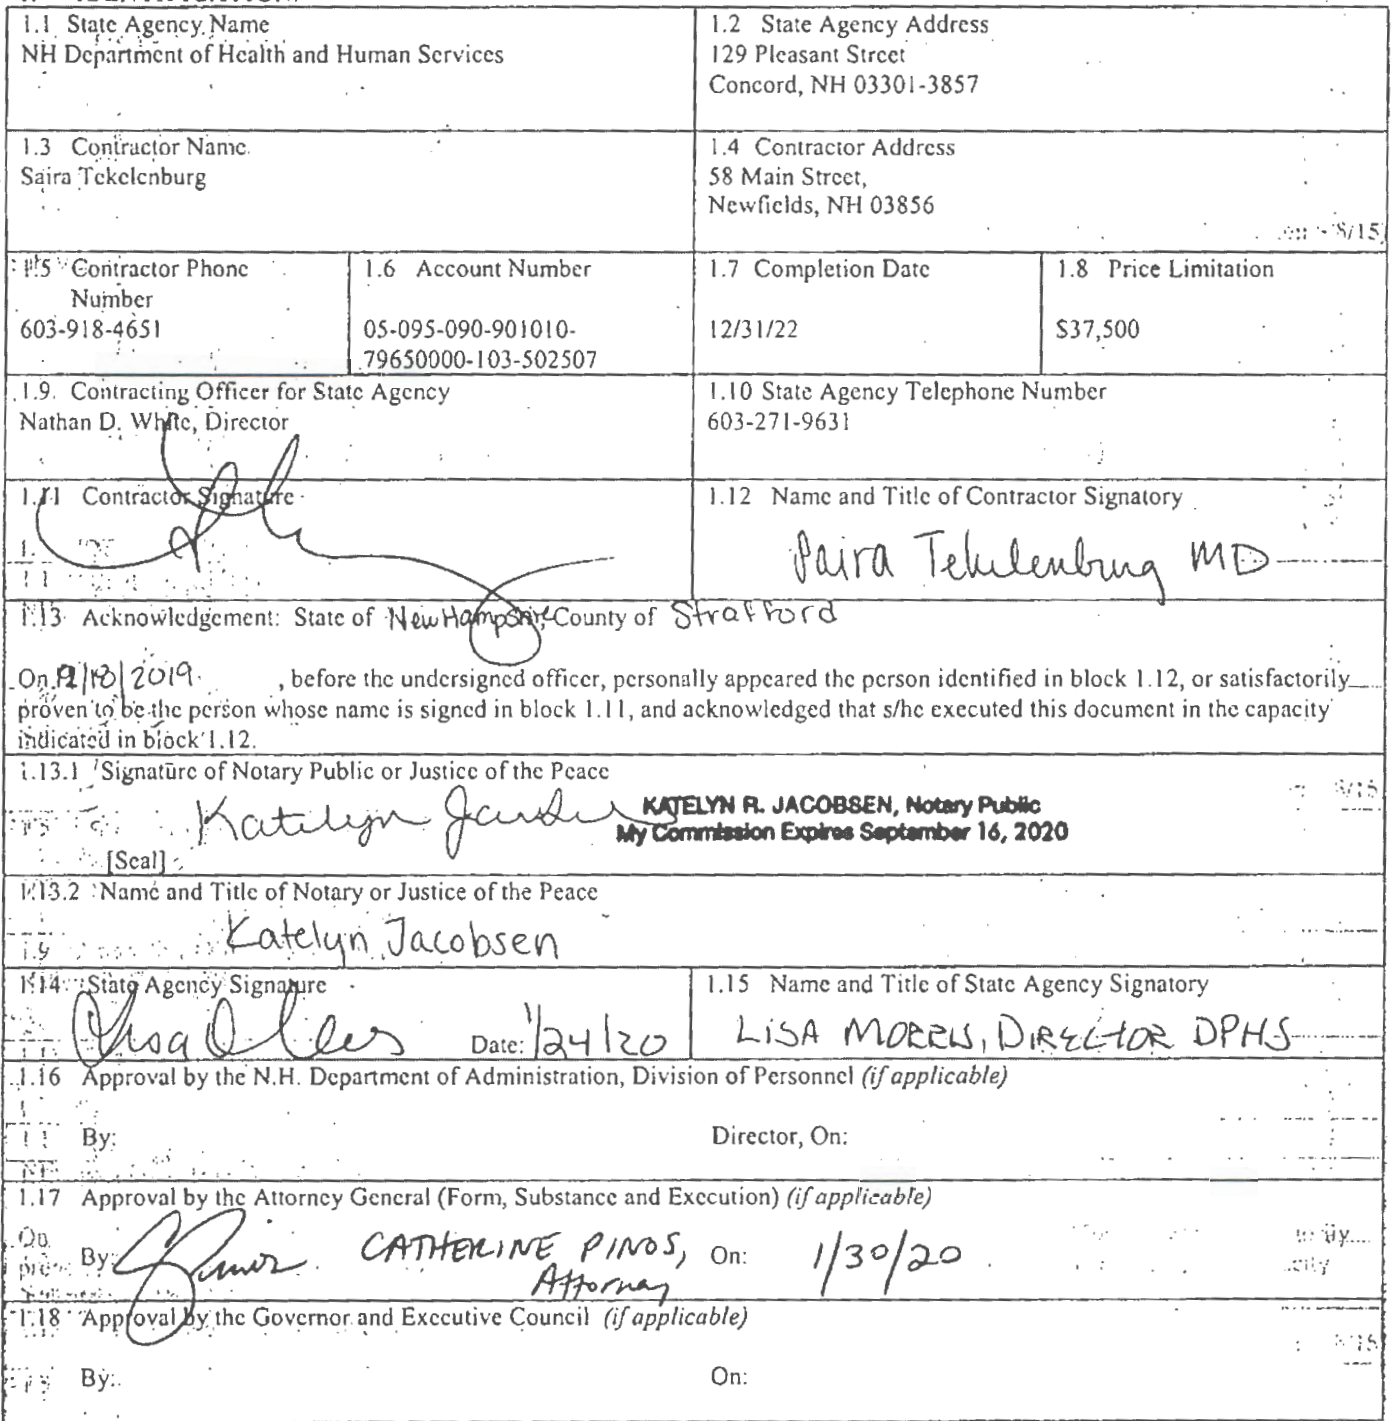 1.1 State Agency Name
NH Department of Health and Human Services
1.2 State Agency Address
129 Pleasant Street
Concord, NH 03301-3857
1.3 Contractor Name
Saira Tekelenburg
1.4 Contractor Address
58 Main Street,
Newfields, NH 03856
8/15
1.5 Contractor Phone
Number
603-918-4651
1.6 Account Number
05-095-090-901010-
79650000-103-502507
1.7 Completion Date
12/31/22
1.8 Price Limitation
$37,500
1.9. Contracting Officer for State Agency
Nathan D. White, Director
1.10 State Agency Telephone Number
603-271-9631
1.11 Contractor Signature
1.12 Name and Title of Contractor Signatory
Saira Tekelenburg MD
1.13 Acknowledgement: State of New Hampshire, County of Strafford
On 12/18/2019 , before the undersigned officer, personally appeared the person identified in block 1.12, or satisfactorily
proven to be the person whose name is signed in block 1.11, and acknowledged that s/he executed this document in the capacity
indicated in block 1.12.
1.13.1 Signature of Notary Public or Justice of the Peace
Katelyn
KATELYN R. JACOBSEN, Notary Public
My Commission Expires September 16, 2020
[Seal]
1.13.2 Name and Title of Notary or Justice of the Peace
Katelyn Jacobsen
1.14 State Agency Signature
Date: 1/24/20
1.15 Name and Title of State Agency Signatory
LISA MORRIS, DIRECTOR DPHS
1.16 Approval by the N.H. Department of Administration, Division of Personnel (if applicable)
By: Director, On:
1.17 Approval by the Attorney General (Form, Substance and Execution) (if applicable)
By: CATHERINE PINOS, On: 1/30/20
Attorney
1.18 Approval by the Governor and Executive Council (if applicable)
By: On: